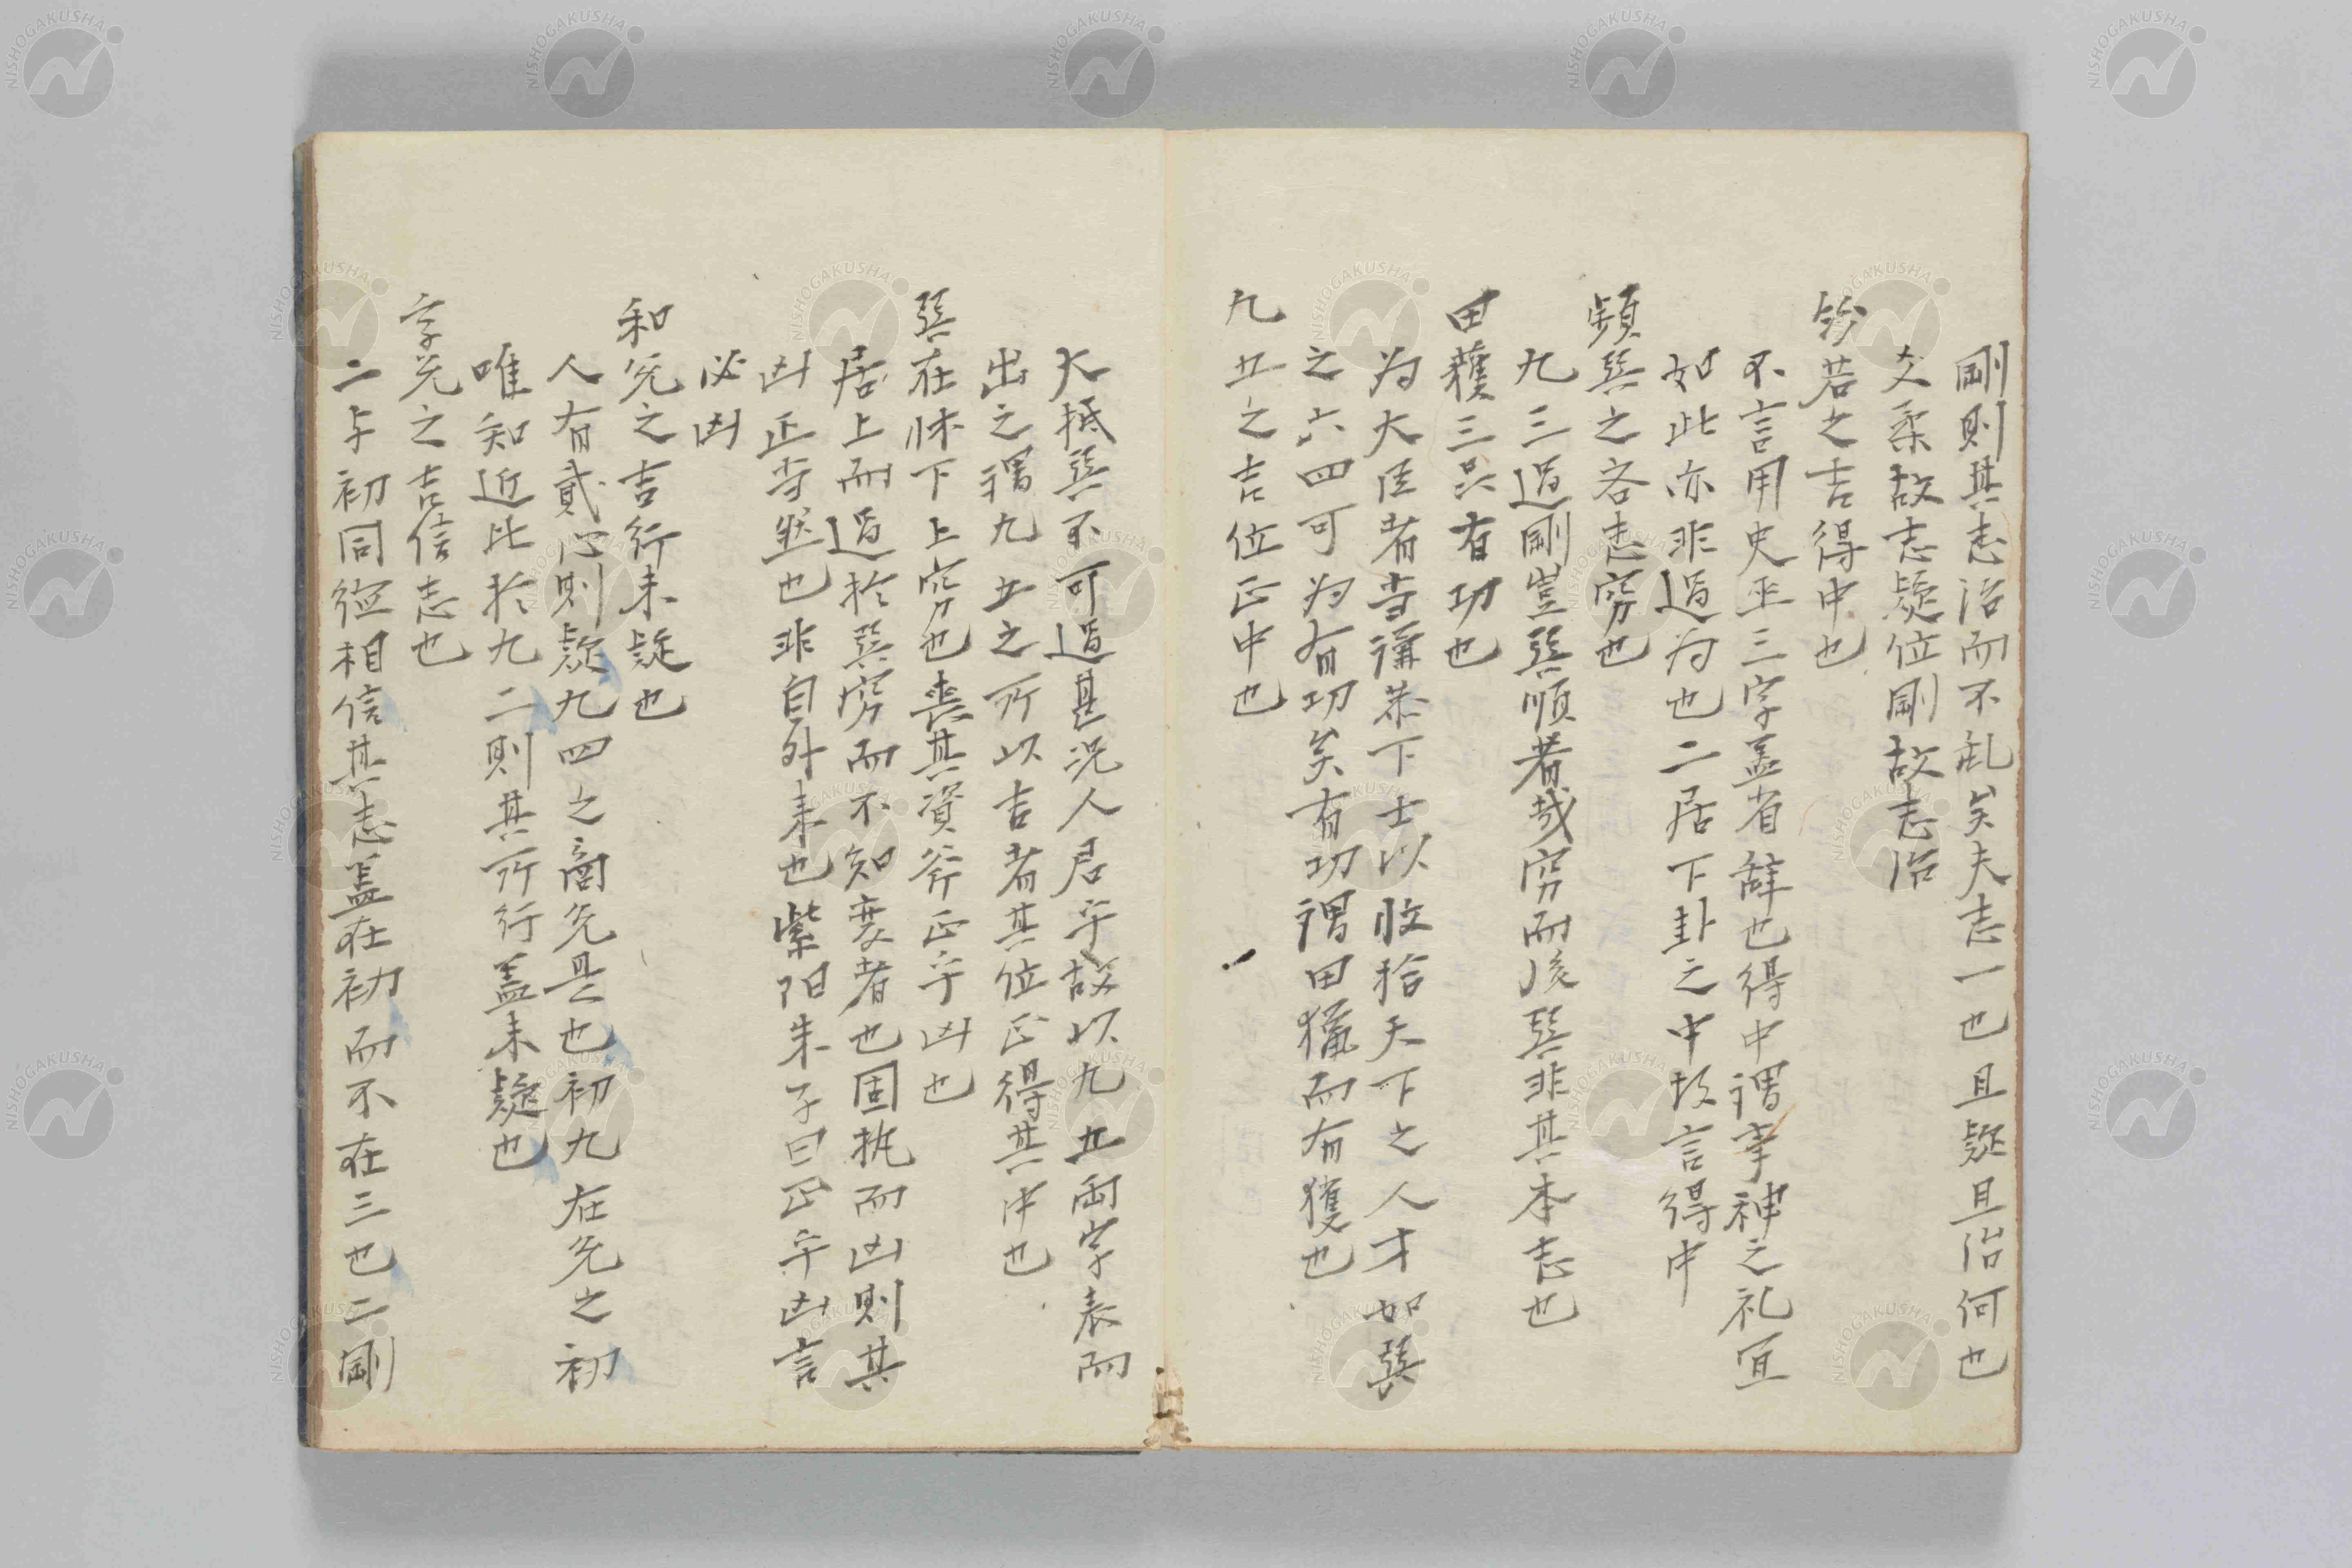 剛則其志治而不乱矣夫志一也且疑且治何也
爻柔故志疑位剛故志治
紛若之吉得中也
不言用史巫三字盖省辞也得中謂事神之礼宜
如此亦非過為也二居下卦之中故言得中
頻巽之吝志窮也
九三過剛豈巽順者哉窮而後巽非其本志也
田獲三品有功也
為大臣者当謙恭下士以收拾天下之人才如巽
之六四可為有功矣有功謂田獵而有獲也
九五之吉位正中也
大抵巽不可過甚况人君乎故以九五両字表而
出之謂九五之所以吉者其位正得其中也
巽在牀下上窮也喪其資斧正乎凶也
居上而過於巽窮而不知変者也固執而凶則其
凶正当然也非自外来也紫阳朱子曰正乎凶言
必凶
和兑之吉行未疑也
人有貳心則疑九四之商兑是也初九在兑之初
唯知近比於九二則其所行盖未疑也
孚兑之吉信志也
二与初同徳相信其志盖在初而不在三也二剛
NISHOGAKUSHA